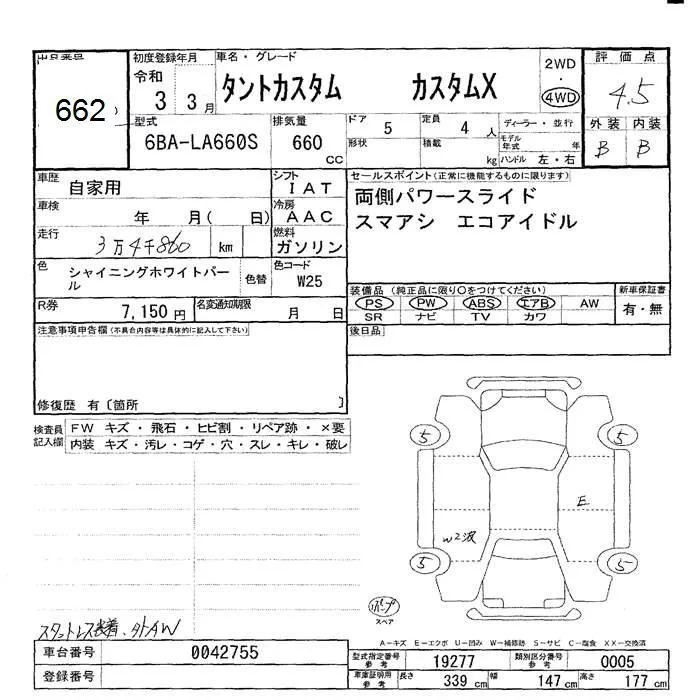 出品番号 初度登録年月 車名・グレード 2WD ・ 4WD 評価点
662 令和 3 3月 タントカスタム カスタムX 4.5
型式 排気量 ドア 5 定員 4 人 ディーラー・並行 外装 内装
6BA-LA660S 660 CC 形状 積載 kg モデル年式 年 ハンドル 左・右 B B
車歴 自家用 シフト IAT セールスポイント(正常に機能するものに限ります)
車検 年 月( 日) 冷房 AAC 両側パワースライド
走行 3万4千860 km 燃料 ガソリン スマアシ エコアイドル
色 シャイニングホワイトパール 色替 色コード W25
装備品(純正品に限り○をつけてください) 新車保証書
R券 7,150円 名変通知期限 月 日 PS PW ABS エアB AW 有・無
SR ナビ TV カワ
注意事項申告欄(不具合内容等は具体的に記入して下さい) 後日品
修復歴 有〔箇所 〕
検査員記入欄 FW キズ・飛石・ヒビ割・リペア跡・×要
内装 キズ・汚レ・コゲ・穴・スレ・キレ・破レ
5 5
E
W2波
5 5
スペア
スタットレス装着、
A-キズ E-エクボ U-凹み W-補修跡 S-サビ C-腐食 XX-交換済
車台番号 0042755 型式指定番号 参考 19277 類別区分番号 参考 0005
登録番号 車庫証明用 参考 長さ 339 cm 幅 147 cm 高さ 177 cm